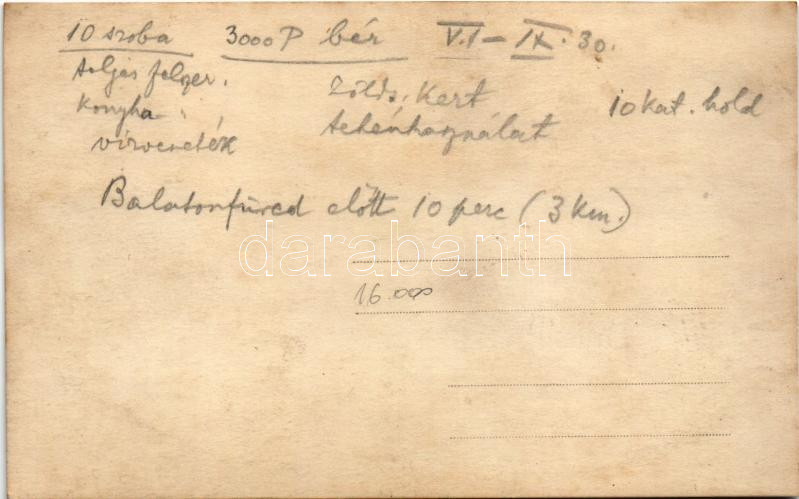 10 szoba 3000 P bér VI.1 – IX. 30.
teljes felszer.
Zölds. kert 10 kat. hold
konyha "
tehénhasználat
vízvezeték
Balatonfüred előtt 10 perc (3 km.)
darabanth
16.000